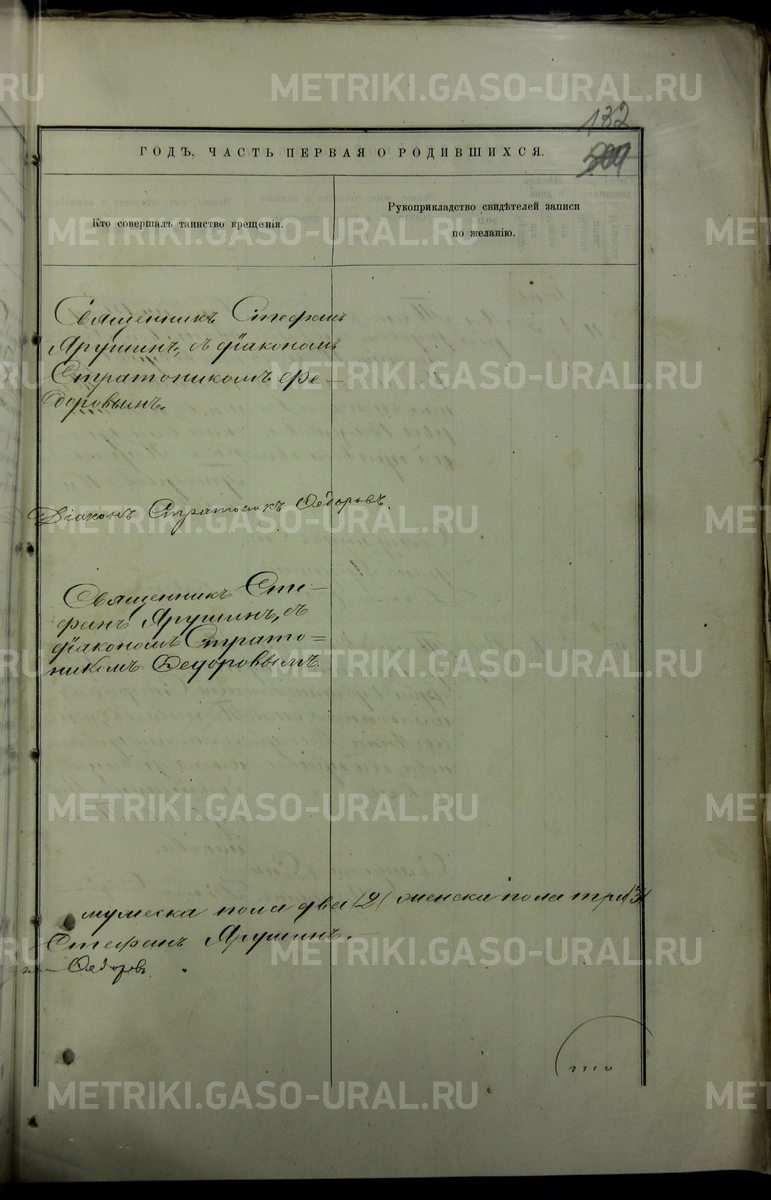 132
ГОДЪ, ЧАСТЬ ПЕРВАЯ О РОДИВШИХСЯ.
Кто совершалъ таинство крещенія.
Рукоприкладство свидѣтелей записи
по желанію.
Священникъ Стефанъ
Ярушинъ, съ діакономъ
Стратоникомъ Фе-
доровымъ.
Діаконъ Стратоникъ Ѳедоровъ.
Священникъ Сте-
фанъ Ярушинъ, съ
діакономъ Страто-
никомъ Ѳедоровымъ
мужеска пола два (2) женска пола три (3)
Стефанъ Ярушинъ.
Ѳедоровъ
METRIKI.GASO-URAL.RU